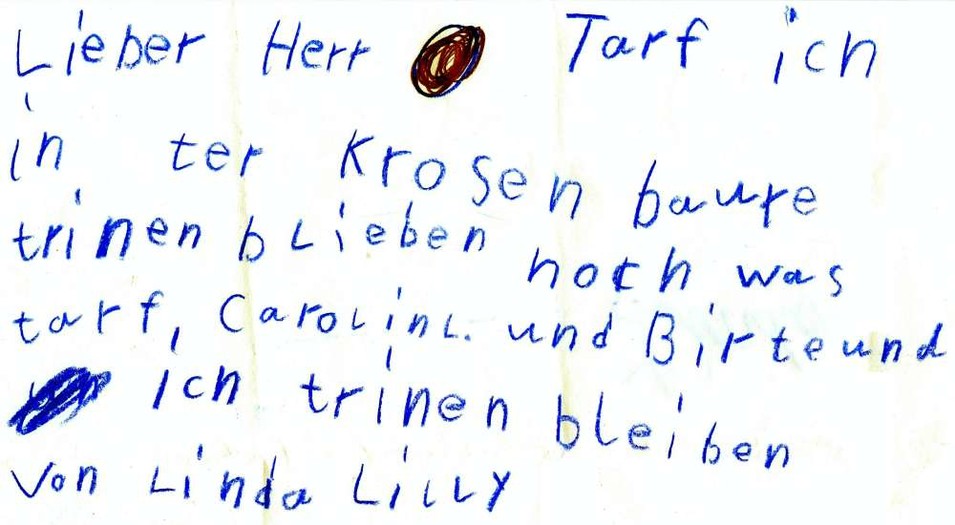 Lieber Herr Tarf ich
in ter Krosen baure
trinen blieben noch was
tarf, Carolin L. und Birte und
ich trinen bleiben
von Linda Lilly